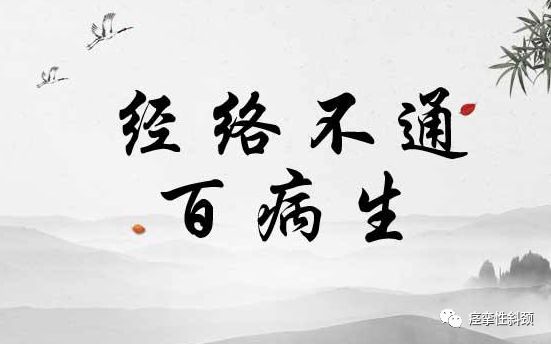 经络不通
百病生
痉挛性斜颈